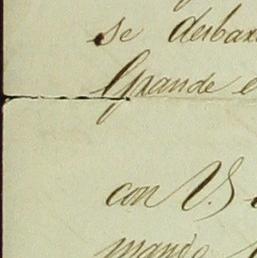 se desbara
Grande e
con V. S
mando